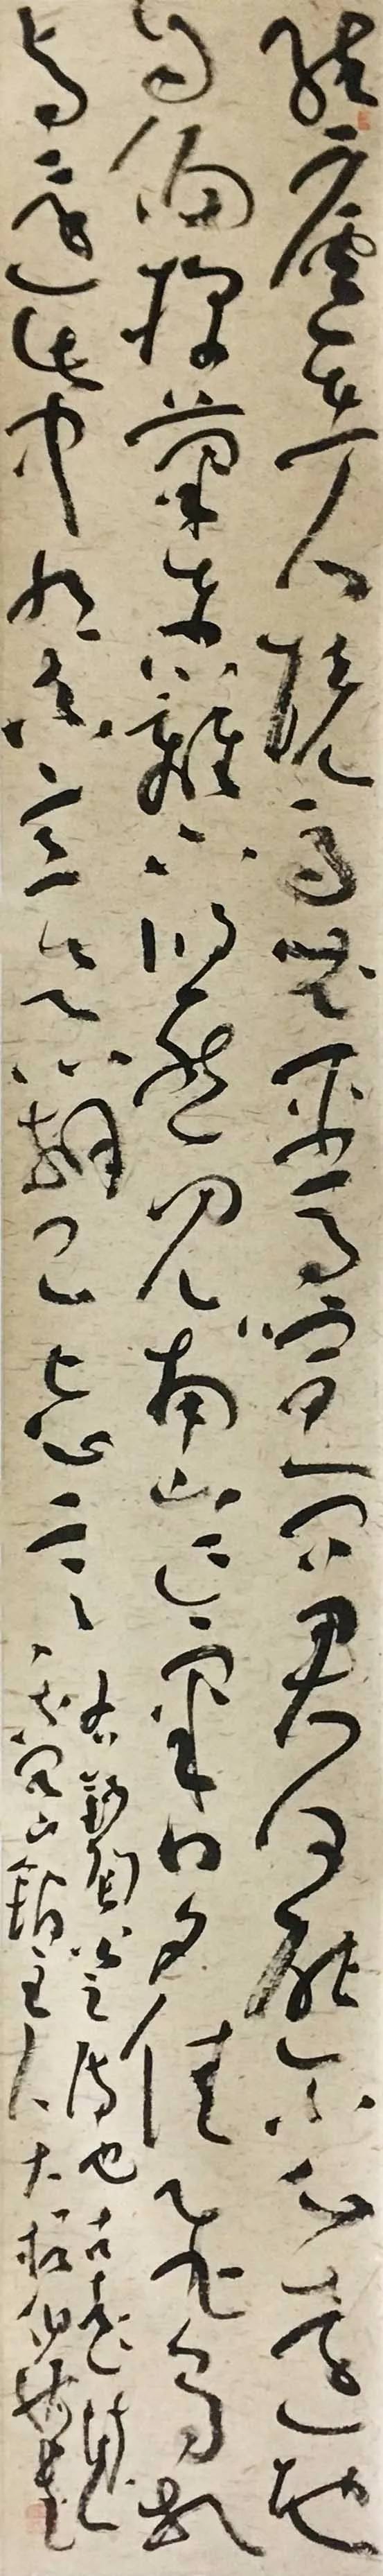 結廬在人境而無車馬喧問君何能爾心遠地
自偏採菊東籬下悠然見南山山氣日夕佳飛鳥相
與還此中有真意欲辨已忘言
右錄陶公之詩也
山館主人大